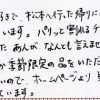 好きで、松本へ行った帰りに
います。パリッと割れる
たあんがなんとも言えませ
か季節限定の品をいただ
いので、ホームページより
ています。